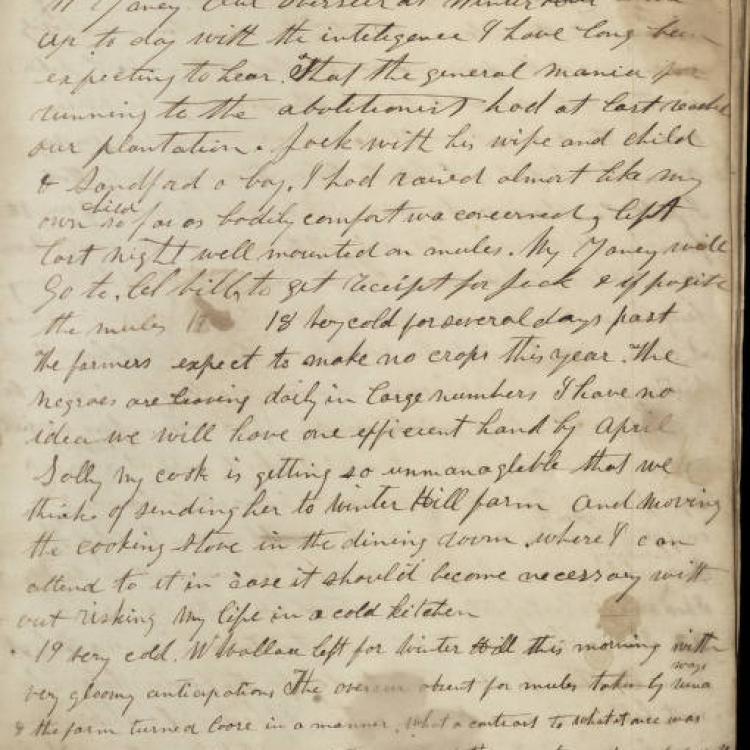 Yancy. Our overseer at Winter
up to day with the inteligence I have long been
expecting to hear. That the general mania for
running to the abolitionist had at last reached
our plantation. Jack with his wife and child
& Sandford a boy, I had raised almost like my
own child so far as bodily comfort was concerned, left
last night well mounted on mules. Mr Yancy will
Go to to get receipt for Jack & if posite
the mules 18 very cold for several days past
The farmers expect to make no crops this year. The
negroes are leaving daily in large numbers I have no
idea we will have one efficient hand by April
Solly my cook is getting so unmanagleble that we
think of sending her to Winter Hill farm and moving
the cooking stove in the dining room, where I can
attend to it in case it should become necessary with
out risking my life in a cold kitchen
19 very cold. W Wallau left for Winter Hill this morning with
very gloomy anticipations The overseer absent for mules taken by
& the farm turned loose in a manner, what a contrast to what it once was